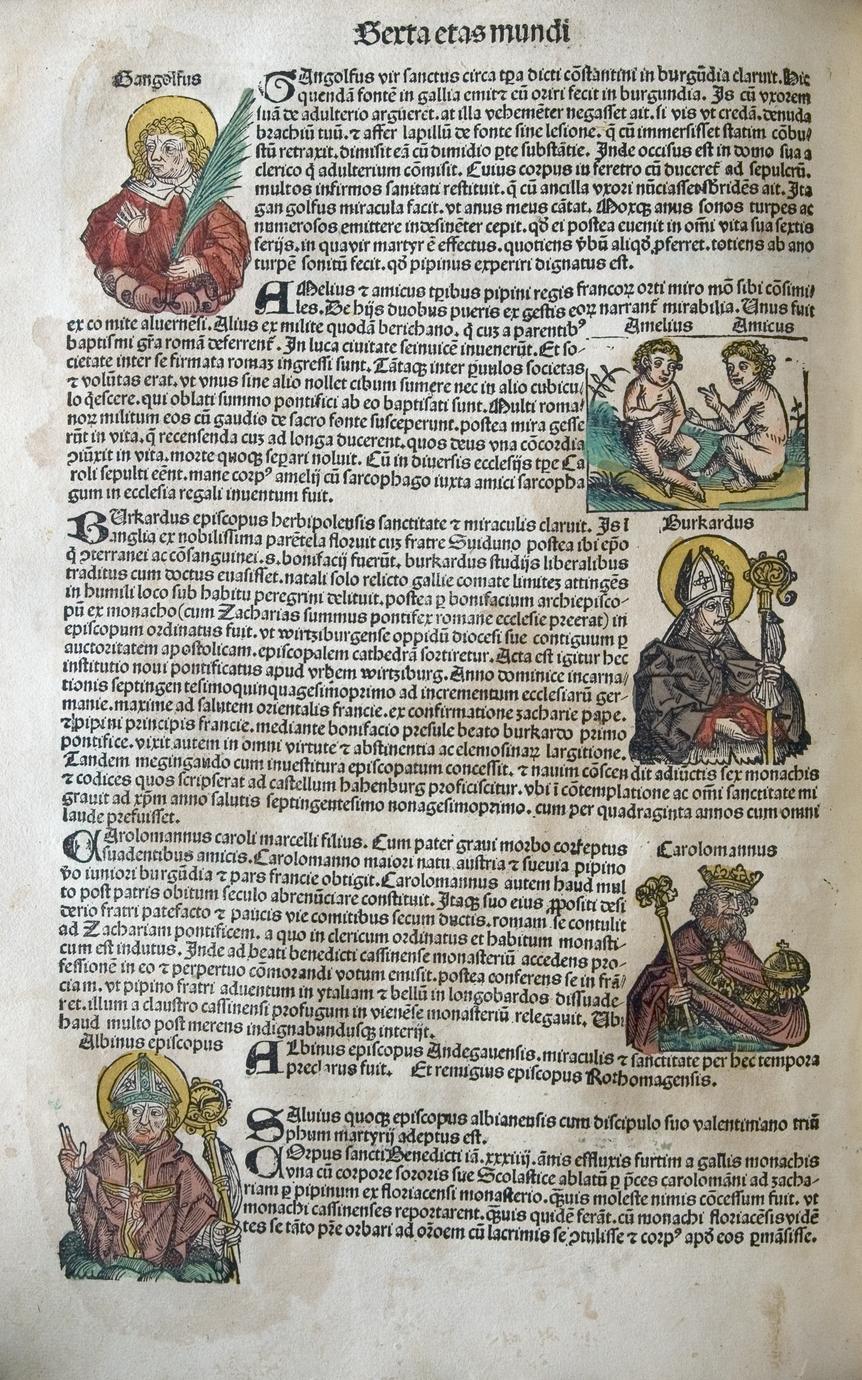 Sexta etas mundi
Gangolfus
GAngolfus vir sanctus circa tp̄a dicti cōstantini in burgūdia claruit. Hic
quendā fontē in gallia emit ⁊ cū oriri fecit in burgundia. Is cū vxorem
suā de adulterio argueret. at illa vehemēter negasset ait. si vis vt credā. denuda
brachiū tuū. ⁊ affer lapillū de fonte sine lesione. q̄ cū immersisset statim cōbu/
stū retraxit. dimisit eā cū dimidio ꝑte substātie. Inde occisus est in domo sua a
clerico q̄ adulterium cōmisit. Cuius corpus in feretro cū duceret᷑ ad sepulcrū.
multos infirmos sanitati restituit. q̄ cū ancilla vxori nūciasset sbridēs ait. Ita
gangolfus miracula facit. vt anus meus cātat. Moxqꝫ anus sonos turpes ac
numerosos emittere indesinēter cepit. qđ ei postea euenit in om̄i vita sua sextis
ferijs. in qua vir martyr ē effectus. quotiens v̄bū aliqđ ꝓferret. totiens ab ano
turpē sonitū fecit. qđ pipinus experiri dignatus est.
AMelius ⁊ amicus tꝑibus pipini regis francoꝝ orti miro mō sibi cōsimi/
les. De hijs duobus pueris ex gestis eoꝝ narrant᷑ mirabilia. Unus fuit
ex comite aluernēsi. Alius ex milite quodā berichano. q̄ cuꝫ a parentibꝰ
Amelius Amicus
baptismi gr̄a romā deferrent᷑. In luca ciuitate seinuicē inuenerūt. Et so-
cietate inter se firmata romaꝫ ingressi sunt. Tātaqꝫ inter ꝑuulos societas
⁊ volūtas erat. vt vnus sine alio nollet cibum sumere nec in alio cubicu/
lo q̄escere. qui oblati summo pontifici ab eo baptisati sunt. Multi roma/
noꝝ militum eos cū gaudio de sacro fonte susceperunt. postea mira gesse
rūt in vita. q̄ recensenda cuꝫ ad longa ducerent. quos deus vna cōcordia
ꝯiūxit in vita. morte quoqꝫ seꝑari noluit. Cū in diuersis ecclesijs tꝑe Ca
roli sepulti eēnt. mane corpꝰ amelij cū sarcophago iuxta amici sarcopha
gum in ecclesia regali inuentum fuit.
Burkardus
BUrkardus episcopus herbipolensis sanctitate ⁊ miraculis claruit. Is ī
anglia ex nobilissima parētela floruit cuꝫ fratre Suiduno postea ibi ep̄o
q̄ ꝯterranei ac cōsanguinei .s. bonifacij fuerūt. burkardus studijs liberalibus
traditus cum doctus euasisset. natali solo relicto gallie comate limiteꝫ attingēs
in humili loco sub habitu peregrini delituit. postea ꝑ bonifacium archiepisco-
pū ex monacho (cum Zacharias summus pontifex romane ecclesie preerat) in
episcopum ordinatus fuit. vt wirtziburgense oppidū diocesi sue contiguum ꝑ
auctoritatem apostolicam. episcopalem cathedrā sortiretur. Acta est igitur hec
institutio noui pontificatus apud vrbem wirtziburg. Anno dominice incarna/
tionis septingentesimoquinquagesimoprimo ad incrementum ecclesiarū ger-
manie. maxime ad salutem orientalis francie. ex confirmatione zacharie pape.
⁊ pipini principis francie. mediante bonifacio presule beato burkardo primo
pontifice. vixit autem in omni virtute ⁊ abstinentia ac elemosinaꝝ largitione.
Tandem megingaudo cum inuestitura episcopatum concessit. ⁊ nauim cōscendit adiūctis sex monachis
⁊ codices quos scripserat ad castellum hahenburg proficiscitur. vbi ī cōtemplatione ac om̄i sanctitate mi
grauit ad xp̄m anno salutis septingentesimo nonagesimoprimo. cum per quadraginta annos cum omni
laude prefuisset.
Carolomannus
CArolomannus caroli marcelli filius. Cum pater graui morbo correptus
suadentibus amicis. Carolomanno maiori natu austria ⁊ sueuia pipino
v̄o iuniori burgūdia ⁊ pars francie obtigit. Carolomannus autem haud mul
to post patris obitum seculo abrenūciare constituit. Itaqꝫ suo eius ꝓpositi desi
derio fratri patefacto ⁊ paucis vie comitibus secum ductis. romam se contulit
ad Zachariam pontificem. a quo in clericum ordinatus et habitum monasti-
cum est indutus. Inde ad beati benedicti cassinense monasteriū accedens pro-
fessionē in eo ⁊ perpetuo cōmorandi votum emisit. postea conferens se in frā/
ciam. vt pipino fratri aduentum in ytaliam ⁊ bellū in longobardos dissuade-
ret. illum a claustro cassinensi profugum in vienēse monasteriū relegauit. Ubi
haud multo post merens indignabundusqꝫ interijt.
Albinus episcopus
ALbinus episcopus Andegauensis. miraculis ⁊ sanctitate per hec tempora
preclarus fuit. Et remigius episcopus Rothomagensis.
SAluius quoqꝫ episcopus albianensis cum discipulo suo valentiniano triū
phum martyrij adeptus est.
COrpus sancti Benedicti iā .xxxiiij. ānis effluxis furtim a gallis monachis
vna cū corpore sororis sue Scolastice ablatū ꝑ p̄ces carolomāni ad zacha-
riam ꝑ pipinum ex floriacensi monasterio. q̄uis moleste nimis cōcessum fuit. vt
monachi cassinenses reportarent. q̄uis quidē ferāt. cū monachi floriacēsis vidē
tes se tāto pr̄e orbari ad or̄oem cū lacrimis se ꝯtulisse ⁊ corpꝰ apđ eos ꝑmāsisse.